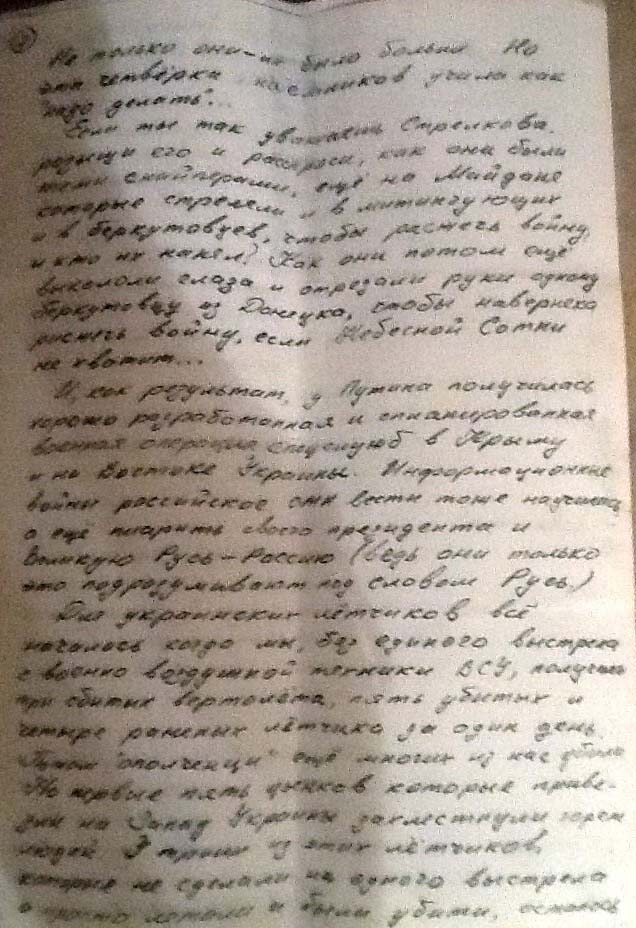 Не только они – их было больше. Но
эта четвёрка наёмников учила как
"надо делать"...
Если ты так уважаешь Стрелкова,
разыщи его и расспроси, как они были
теми снайперами, ещё на Майдане
которые стреляли и в митингующих
и в беркутовцев, чтобы разжечь войну
и кто их нанял? Как они потом ещё
выкололи глаза и отрезали руки одному
беркутовцу из Донецка, чтобы наверняка
разжечь войну, если Небесной Сотни
не хватит...
И, как результат, у Путина получилась
хорошо разработанная и спланированная
военная операция спецслужб в Крыму
и на Востоке Украины. Информационные
войны российское сми вести тоже
а ещё пиарить своего президента и
Великую Русь – Россию (ведь они только
это подразумивают под словом Русь.)
Для украинских лётчиков всё
началось когда мы, без единого выстрела
с военно воздушной техники ВСУ, получили
три сбитых вертолёта, пять убитых и
четыре раненых лётчика за один день.
"ополченци" ещё многих из нас убили
Но первые пять цинков которые приве-
зли на Запад Украины захлестнули горем
людей У троих из этих лётчиков,
которые не сделали ни одного выстрела
а просто летали и были убиты, осталось